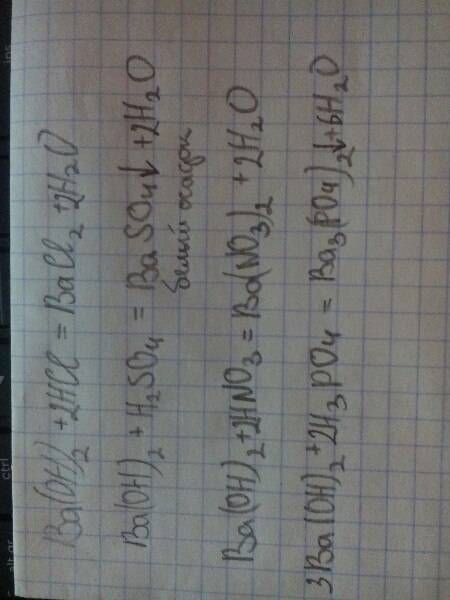 Ba(OH)₂ + 2HCl = BaCl₂ + 2H₂O
Ba(OH)₂ + H₂SO₄ = BaSO₄↓ + 2H₂O
белый осадок
Ba(OH)₂ + 2HNO₃ = Ba(NO₃)₂ + 2H₂O
3Ba(OH)₂ + 2H₃PO₄ = Ba₃(PO₄)₂↓ + 6H₂O
ins
ctrl
alt gr